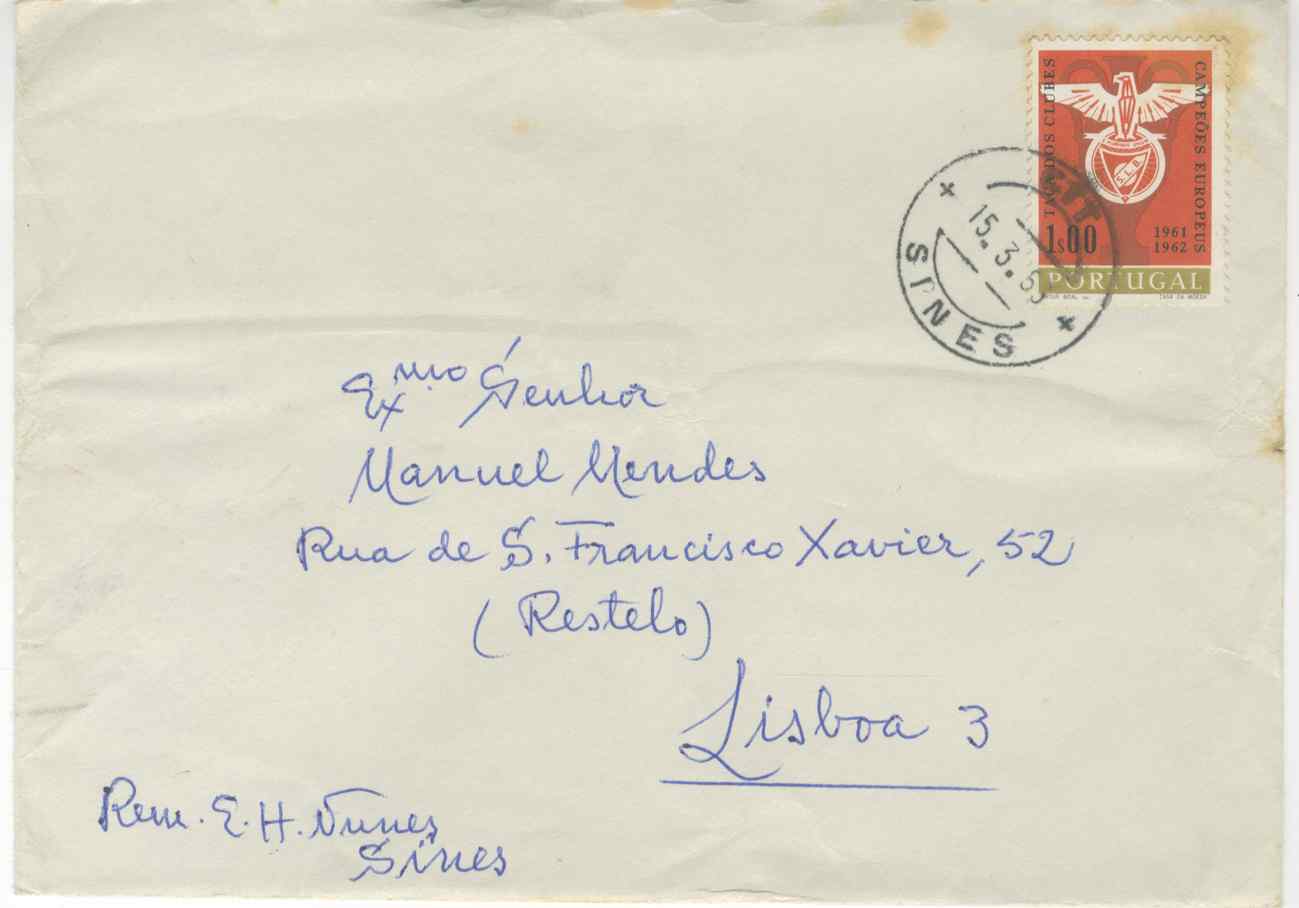 TAÇA DOS CLUBES
CAMPEÕES EUROPEUS
S.L.B.
1$00
1961
1962
PORTUGAL
CASA DA MOEDA
CTT
15.3.6
SINES
Exmo Senhor
Manuel Mendes
Rua de S. Francisco Xavier, 52
(Restelo)
Lisboa 3
Rem. E. H. Nunes
Sines